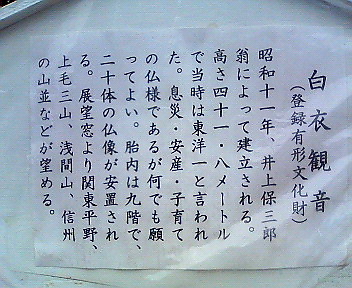 白衣観音
(登録有形文化財)
昭和十一年、井上保三郎
翁によって建立される。
高さ四十一・八メートル
で当時は東洋一と言われ
た。息災・安産・子育て
の仏様であるが何でも願
ってよい。胎内は九階で、
二十体の仏像が安置され
る。展望窓より関東平野、
上毛三山、浅間山、信州
の山並などが望める。